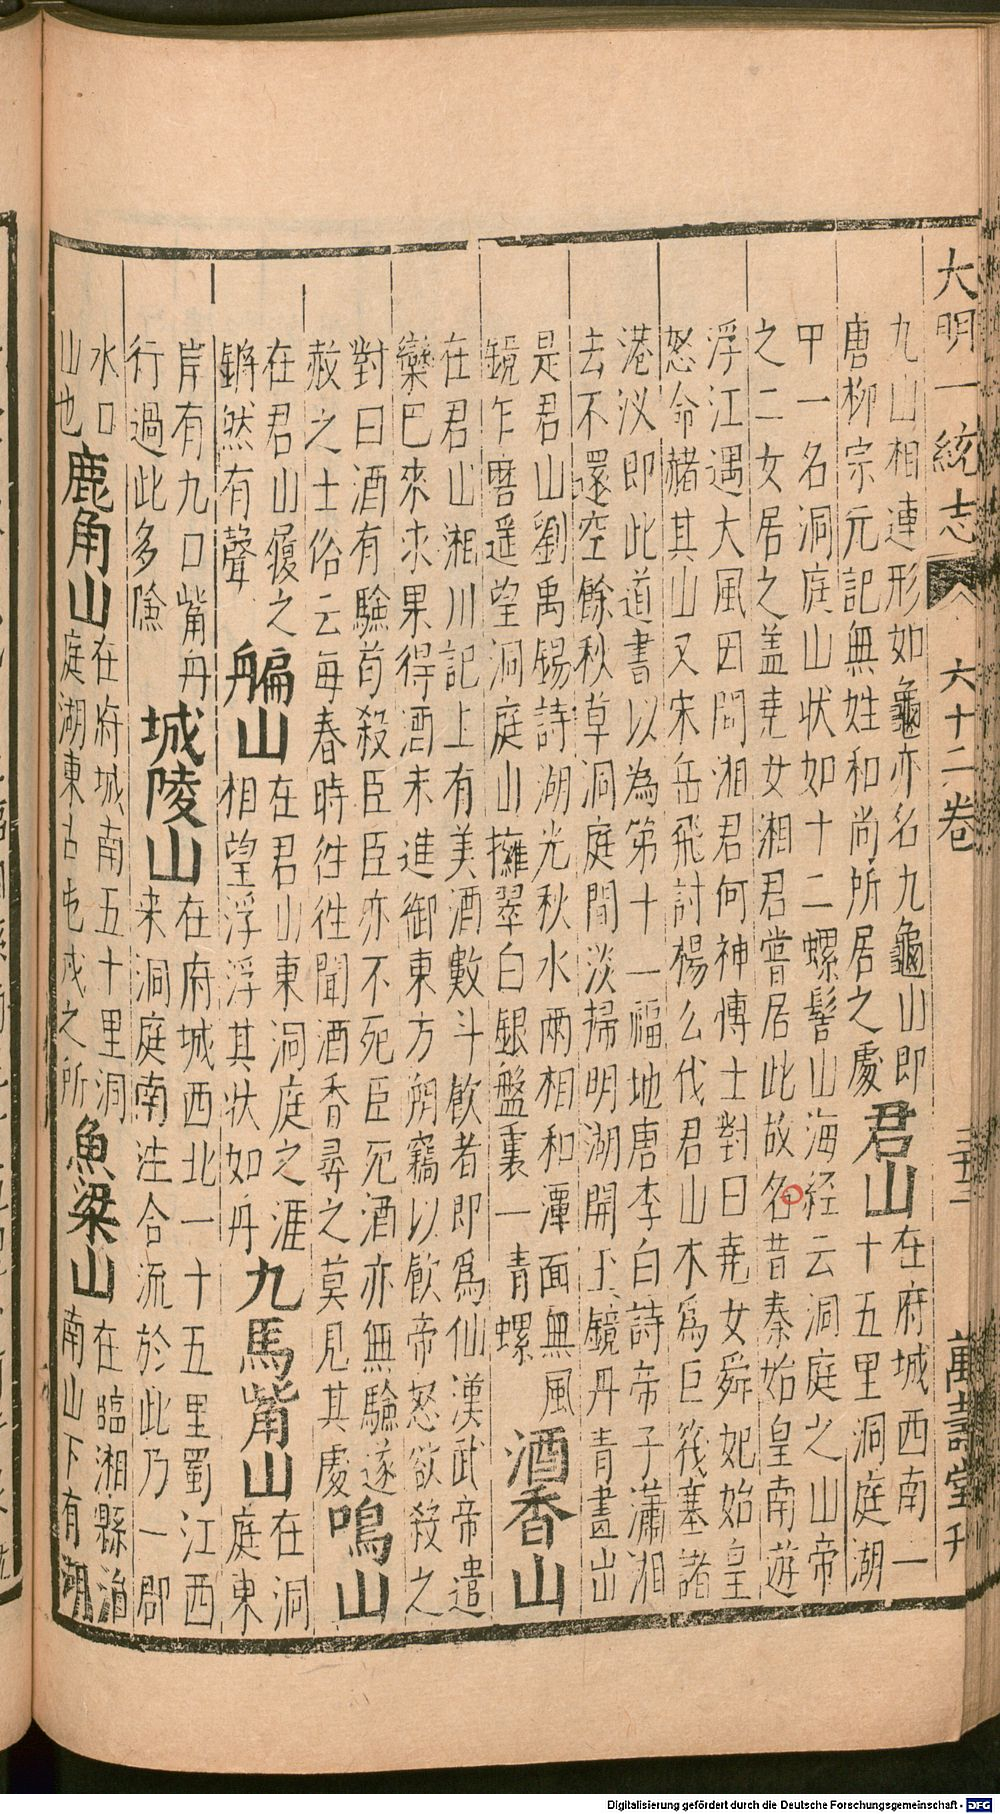 大明一統志 六十二卷 萬壽堂刊
九山相連形如龜亦名九龜山即
唐柳宗元記無姓和尚所居之處
君山
在府城西南一
十五里洞庭湖
甲一名洞庭山状如十二螺髻山海経云洞庭之山帝
之二女居之盖堯女湘君嘗居此故名昔秦始皇南遊
浮江遇大風因問湘君何神博士對曰堯女舜妃始皇
怒命赭其山又宋岳飛討楊么伐君山木為巨筏塞諸
港汊即此道書以為第十一福地唐李白詩帝子瀟湘
去不還空餘秋草洞庭間淡掃明湖開玉鏡丹青畫出
是君山劉禹錫詩湖光秋水兩相和潭面無風
鏡乍磨遥望洞庭山擁翠白銀盤裏一青螺
酒香山
在君山湘川記上有美酒數斗飲者即為仙漢武帝遣
欒巴來求果得酒未進御東方朔竊以飲帝怒欲殺之
對曰酒有驗苟殺臣臣亦不死臣死酒亦無驗遂
赦之士俗云每春時徃徃聞酒香尋之莫見其處
鳴山
在君山履之
錚然有聲
艑山
在君山東洞庭之涯
相望浮浮其状如舟
九馬觜山
在洞
庭東
岸有九口觜舟
行過此多險
城陵山
在府城西北一十五里蜀江西
来洞庭南注合流於此乃一郡
水口
山也
鹿角山
在府城南五十里洞
庭湖東古屯戍之所
魚梁山
在臨湘縣治
南山下有湖
Digitalisierung gefördert durch die Deutsche Forschungsgemeinschaft - DFG